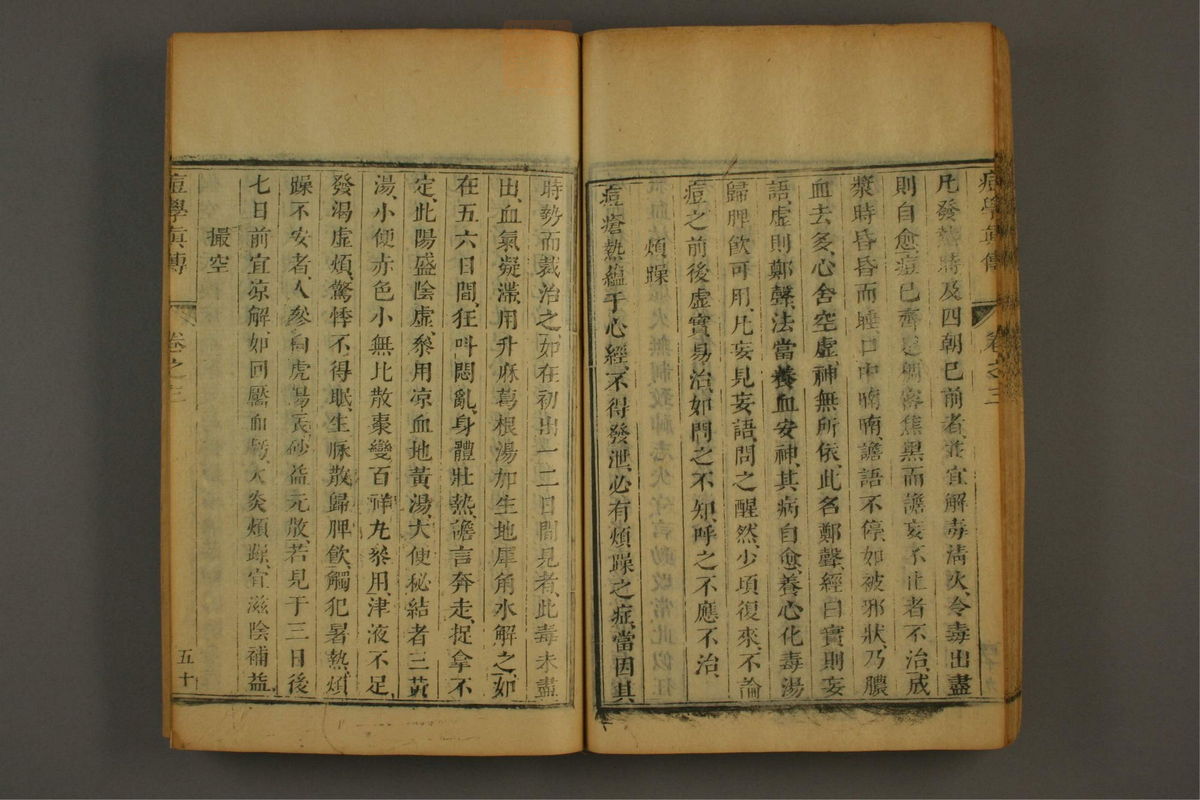 痘學眞傳 卷之三
凡發熱時及四朝已前者、並宜解毒淸火、令毒出盡
則自愈、痘已齊、焦黑而譫妄不止者不治、成
漿時昏昏而睡、口中喃喃、譫語不停、如被邪狀、乃膿
血去多、心舍空虛、神無所依、此名鄭聲、經曰實則妄
語、虛則鄭聲、法當養血安神、其病自愈、養心化毒湯
歸脾飲可用、凡妄見妄語、問之醒然、少頃復來、不論
痘之前後虛實易治、如問之不知、呼之不應不治、
煩躁
痘瘡熱蘊于心經、不得發泄、必有煩躁之症、當因其
時勢而裁治之、如在初出一二日間見者、此毒未盡
出、血氣凝滯、用升麻葛根湯加生地犀角水解之、如
在五六日間、狂叫悶亂、身體壯熱、譫言奔走、捉拿不
定、此陽盛陰虛、叅用凉血地黃湯、大便秘結者三黃
湯、小便赤色小無比散棗變百祥丸叅用、津液不足、
發渴虛煩、驚悸不得眠、生脉散歸脾飲、觸犯暑熱、煩
躁不安者、人參白虎湯辰砂益元散、若見于三日後
七日前宜凉解、如回靨血虧、火炎煩躁、宜滋陰補益、
撮空
痘學眞傳 卷之三 五十